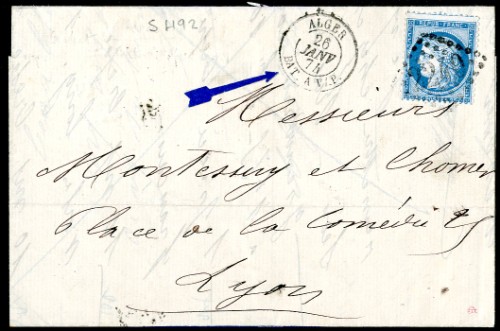 SH92
ALGER
26
JANV
74
BAT. A VAP.
REPUB · FRANC
Messieurs
Montessuy et Chomer
Place de la Comédie 25
Lyon